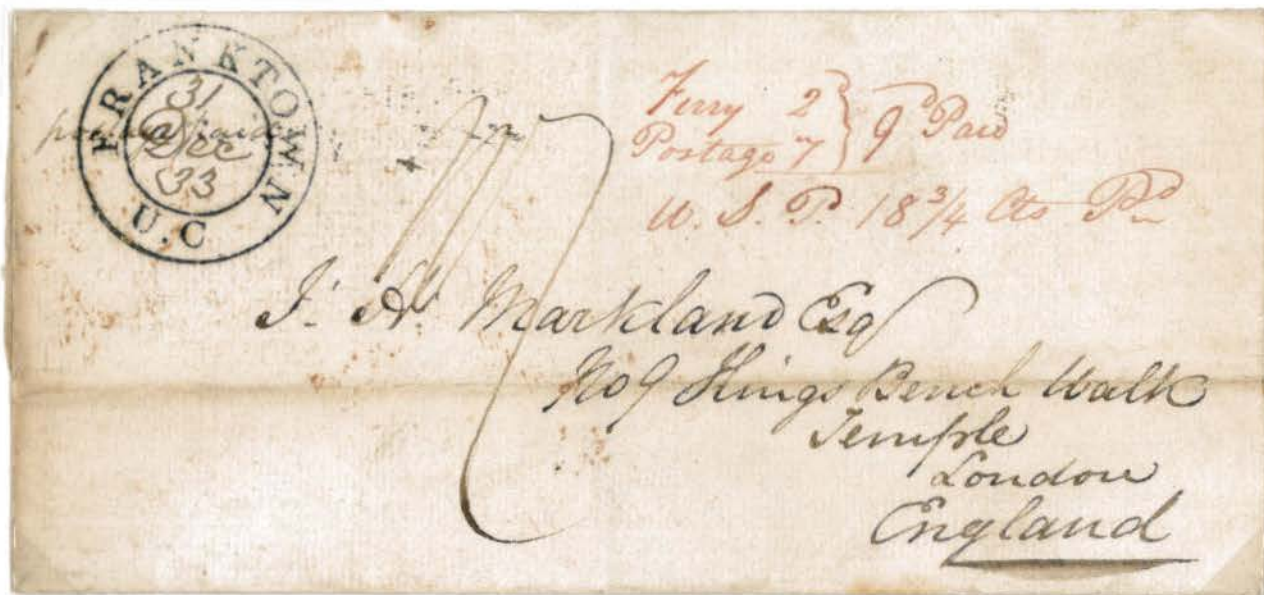 FRANKTOWN
31
Dec
33
U.C
paid
Ferry 2 } 9d Paid
Postage 7
U. S. P. 18 3/4 Cts Pd
J. H. Markland Esq
No 9 Kings Bench Walk
Temple
London
England